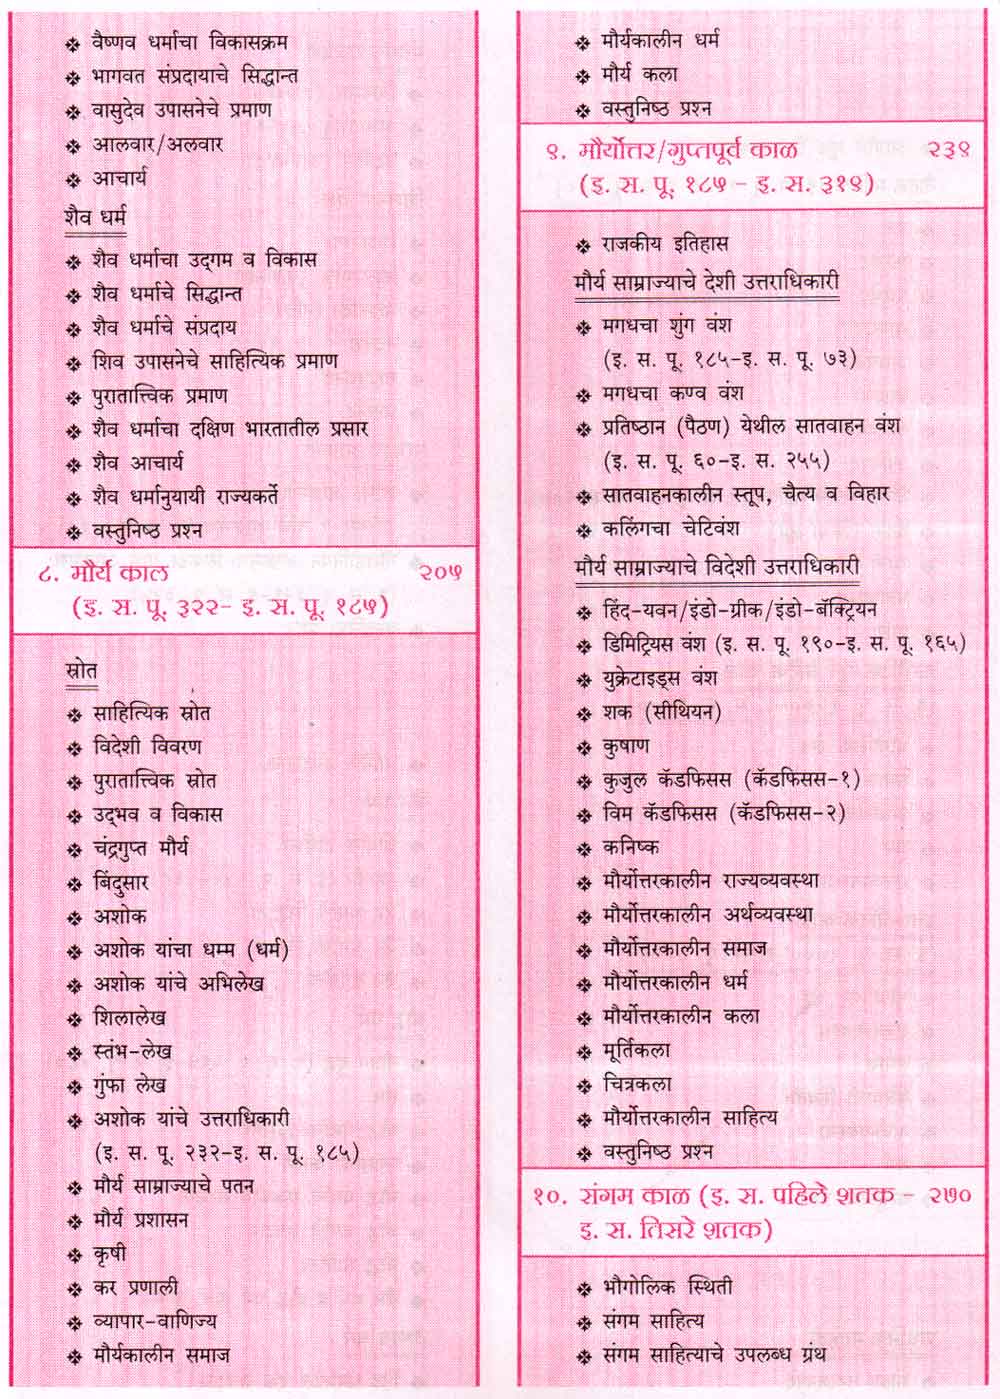 ❖ वैष्णव धर्माचा विकासक्रम
❖ भागवत संप्रदायाचे सिद्धान्त
❖ वासुदेव उपासनेचे प्रमाण
❖ आलवार/अलवार
❖ आचार्य
शैव धर्म
❖ शैव धर्माचा उद्‌गम व विकास
❖ शैव धर्माचे सिद्धान्त
❖ शैव धर्माचे संप्रदाय
❖ शिव उपासनेचे साहित्यिक प्रमाण
❖ पुरातात्त्विक प्रमाण
❖ शैव धर्माचा दक्षिण भारतातील प्रसार
❖ शैव आचार्य
❖ शैव धर्मानुयायी राज्यकर्ते
❖ वस्तुनिष्ठ प्रश्न
८. मौर्य काल २०५
(इ. स. पू. ३२२- इ. स. पू. १८५)
स्रोत
❖ साहित्यिक स्रोत
❖ विदेशी विवरण
❖ पुरातात्त्विक स्रोत
❖ उद्‌भव व विकास
❖ चंद्रगुप्त मौर्य
❖ बिंदुसार
❖ अशोक
❖ अशोक यांचा धम्म (धर्म)
❖ अशोक यांचे अभिलेख
❖ शिलालेख
❖ स्तंभ-लेख
❖ गुंफा लेख
❖ अशोक यांचे उत्तराधिकारी
(इ. स. पू. २३२-इ. स. पू. १८५)
❖ मौर्य साम्राज्याचे पतन
❖ मौर्य प्रशासन
❖ कृषी
❖ कर प्रणाली
❖ व्यापार-वाणिज्य
❖ मौर्यकालीन समाज
❖ मौर्यकालीन धर्म
❖ मौर्य कला
❖ वस्तुनिष्ठ प्रश्न
९. मौर्योत्तर/गुप्तपूर्व काळ २३९
(इ. स. पू. १८५ - इ. स. ३१९)
❖ राजकीय इतिहास
मौर्य साम्राज्याचे देशी उत्तराधिकारी
❖ मगधचा शुंग वंश
(इ. स. पू. १८५-इ. स. पू. ७३)
❖ मगधचा कण्व वंश
❖ प्रतिष्ठान (पैठण) येथील सातवाहन वंश
(इ. स. पू. ६०-इ. स. २५५)
❖ सातवाहनकालीन स्तूप, चैत्य व विहार
❖ कलिंगचा चेटिवंश
मौर्य साम्राज्याचे विदेशी उत्तराधिकारी
❖ हिंद-यवन/इंडो-ग्रीक/इंडो-बॅक्ट्रियन
❖ डिमिट्रियस वंश (इ. स. पू. १९०-इ. स. पू. १६५)
❖ युक्रेटाइड्स वंश
❖ शक (सीथियन)
❖ कुषाण
❖ कुजुल कॅडफिसस (कॅडफिसस-१)
❖ विम कॅडफिसस (कॅडफिसस-२)
❖ कनिष्क
❖ मौर्योत्तरकालीन राज्यव्यवस्था
❖ मौर्योत्तरकालीन अर्थव्यवस्था
❖ मौर्योत्तरकालीन समाज
❖ मौर्योत्तरकालीन धर्म
❖ मौर्योत्तरकालीन कला
❖ मूर्तिकला
❖ चित्रकला
❖ मौर्योत्तरकालीन साहित्य
❖ वस्तुनिष्ठ प्रश्न
१०. संगम काळ (इ. स. पहिले शतक - २७०
इ. स. तिसरे शतक)
❖ भौगोलिक स्थिती
❖ संगम साहित्य
❖ संगम साहित्याचे उपलब्ध ग्रंथ